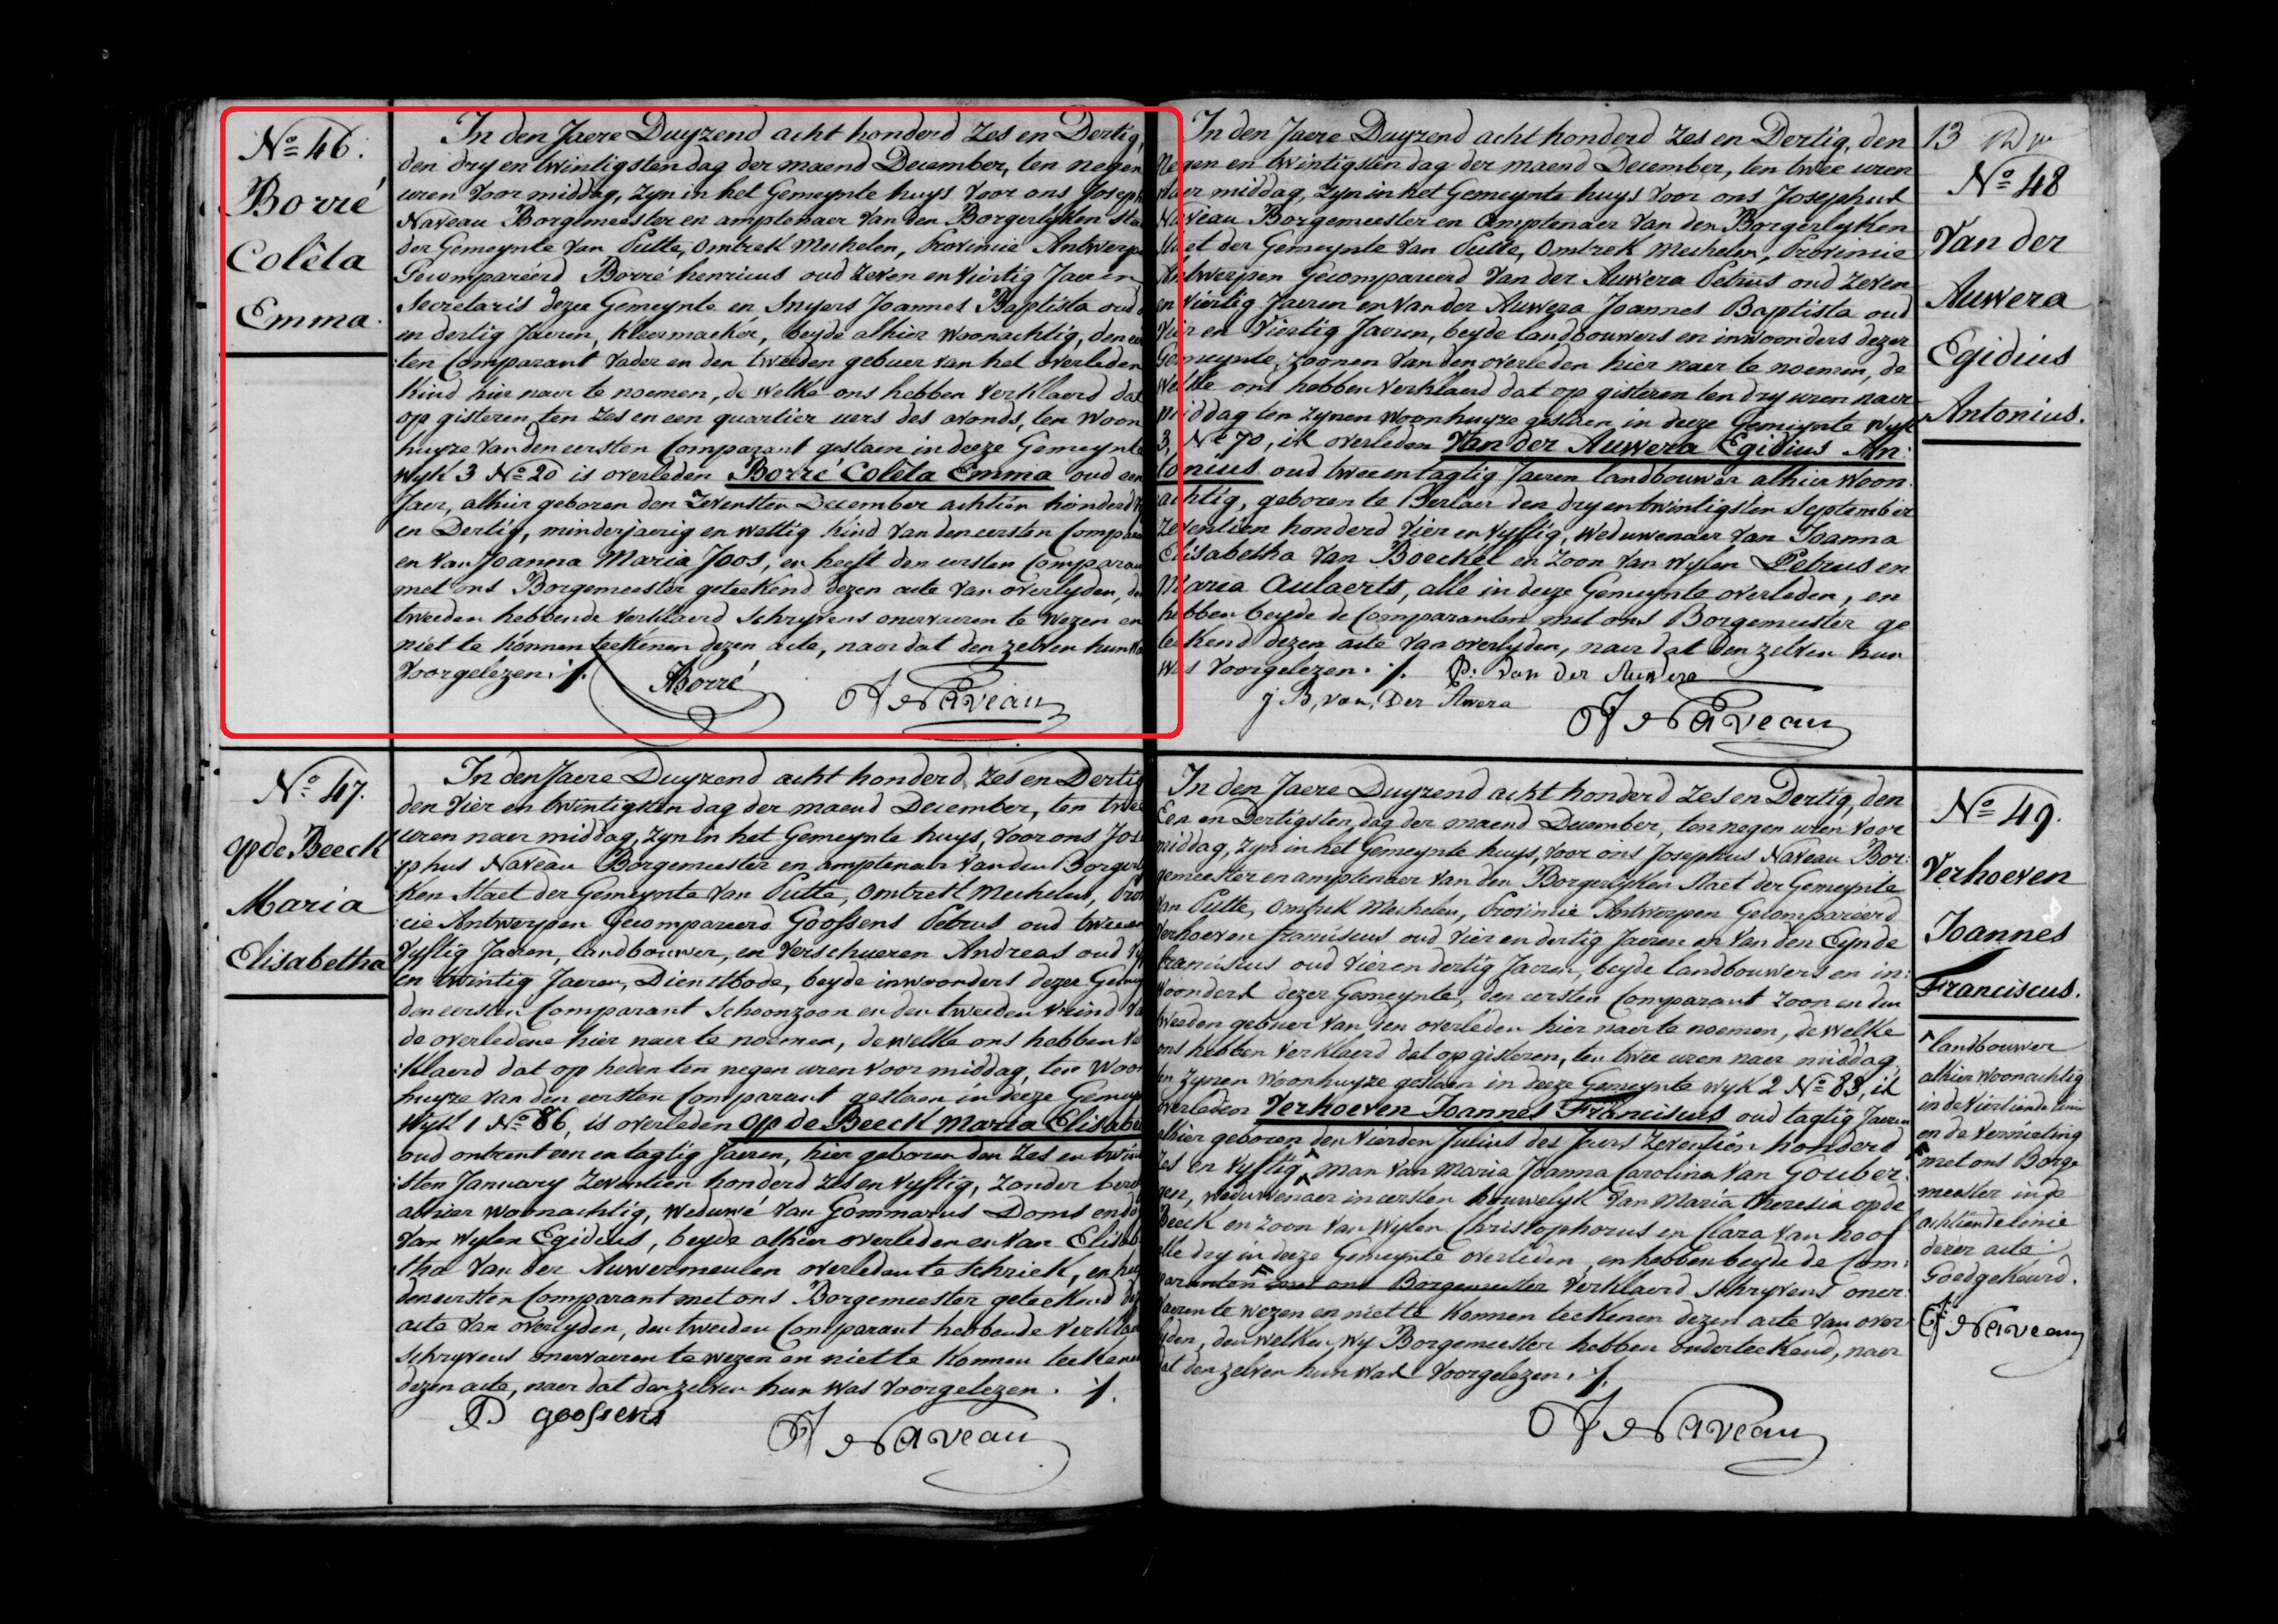 No 46.
Borré
Colèta
Emma.
In den Jaere Duyzend acht honderd Zes en Dertig,
den dry en twintigsten dag der maend December, ten negen
uren Voormiddag, zyn in het Gemeynte huys Voor ons Joseph
Naveau Borgemeester en amptenaer Van den Borgerlyken Sta
der Gemeynte Van Putte, Omtrek Mechelen, Provincie Antwerpe
Gecompareerd Borré henricus oud Zeven en Viertig Jaeren
Secretaris dezer Gemeynte en Snyers Joannes Baptista oud
en dertig Jaeren, kleermaeker, beyde alhier Woonachtig, den eer
:ten Comparant Vader en den tweeden gebuer Van het overleden
Kind hier naer te noemen, de Welke ons hebben Verklaerd dat
op gisteren ten zes en een quartier uers des avonds, ten Woon
huyze Van den eersten Comparant gestaen in deeze Gemeynte
Wyk 3 No 20 is overleden Borré Colèta Emma oud een
Jaer, alhier geboren den Zevensten December achtien honderd
en Dertig, minderjaerig en wettig Kind Van den eersten Compara
en Van Joanna Maria Joos, en heeft den eersten Comparan
met ons Borgemeester geteekend dezen acte Van overlyden, de
tweeden hebbende Verklaerd Schryvens onervaeren te Wezen en
niet te konnen teekenen dezen acte, naer dat den zelven hun
Voorgelezen. ./.
HBorré
J Naveau
No 47.
op de Beeck
Maria
Elisabetha
In den Jaere Duyzend acht honderd Zes en Dertig
den Vier en twintigsten dag der maend December, ten twee
uren naer middag, zyn in het Gemeynte huys, Voor ons Jos
phus Naveau Borgemeester en amptenaer Van den Borgerl
ken Staet der Gemeynte Van Putte, Omtrek Mechelen, Prov
:cie Antwerpen Gecompareerd Goossens Petrus oud twee en
Vyftig Jaeren, landbouwer, en Verschueren Andreas oud Vy
en twintig Jaeren, Dienstbode, beyde inwoonders dezer Gemey
den eersten Comparant Schoonzoon en den tweeden Vriend Va
de overledene hier naer te noemen, de welke ons hebben Ve
:klaerd dat op heden ten negen uren Voormiddag, ten Woon
huyze Van den eersten Comparant gestaen in deeze Gemey
Wyk 1 No 86, is overleden op de Beeck Maria Elisabe
oud ontrent een en tagtig Jaeren, hier geboren den Zes en twin
:sten January Zeventien honderd Zes en Vyftig, Zonder bero
alhier woonachtig, Weduwé Van Gommarus Doms en do
Van Wylen Egidius, beyde alhier overleden en Van Elisab
:tha Van der Auwermeulen overleden te Schriek, en hee
den eersten Comparant met ons Borgemeester geteekend de
acte Van overlyden, den tweeden Comparant hebbende Verklae
Schryvens onervaeren te wezen en niet te konnen teekenen
dezen acte, naer dat den zelven hun Was Voorgelezen. ./.
P goossens
J Naveau
13
No 48
Van der
Auwera
Egidius
Antonius.
In den Jaere Duyzend acht honderd Zes en Dertig, den
Negen en twintigsten dag der maend December, ten twee uren
naer middag, Zyn in het Gemeynte huys Voor ons Josephus
Naveau Borgemeester en Amptenaer Van den Borgerlyken
Staet der Gemeynte Van Putte, Omtrek Mechelen, Provincie
Antwerpen Gecompareerd Van der Auwera Petrus oud Zeven
en Viertig Jaeren en Van der Auwera Joannes Baptista oud
Vier en Viertig Jaeren, beyde landbouwers en inwoonders dezer
Gemeynte, Zoonen Van den overleden hier naer te noemen, de
Welke ons hebben Verklaerd dat op gisteren ten dry uren naer
middag ten zynen Woonhuyze gestaen in deeze Gemeynte Wyk
3, No 70, is overleden Van der Auwera Egidius An:
tonius oud twee en tagtig Jaeren landbouwer alhier Woon:
achtig, geboren te Berlaer den dry en twintigsten September
Zeventien honderd Vier en Vyftig, Weduwenaer Van Joanna
Elisabetha Van Boeckel en Zoon Van Wylen Petrus en
Maria Aulaerts, alle in deeze Gemeynte overleden, en
hebben beyde de Comparanten met ons Borgemeester ge
teekend dezen acte Van overlyden, naer dat den zelven hun
Was Voorgelezen. ./. P: Van der Auwera
J B, van, Der Auwera
J Naveau
No 49.
Verhoeven
Joannes
Franciscus.
In den Jaere Duyzend acht honderd Zes en Dertig, den
Een en Dertigsten dag der maend December, ten negen uren Voor
middag, Zyn in het Gemeynte huys, Voor ons Josephus Naveau Bor:
gemeester en amptenaer Van den Borgerlyken Staet der Gemeynte
Van Putte, Omtrek Mechelen, Provincie Antwerpen Gecompareerd
Verhoeven franciscus oud Vier en dertig Jaeren en Van den Eynde
franciscus oud Vier en dertig Jaeren, beyde landbouwers en in:
woonders dezer Gemeynte, den eersten Comparant Zoon en den
tweeden gebuer Van den overleden hier naer te noemen, de welke
ons hebben Verklaerd dat op gisteren, ten twee uren naer middag,
ten Zynen Woonhuyze gestaen in deeze Gemeynte Wyk 2 No 83, is
overleden Verhoeven Joannes Franciscus oud tagtig Jaeren
alhier geboren den Vierden Julius des Jaers Zeventien honderd
Zes en Vyftig, man Van Maria Joanna Carolina Van Gouber:
gen, Weduwenaer in eersten houwelyk Van Maria Theresia op de
Beeck en Zoon Van Wylen Christophorus en Clara Van hoof
alle dry in deeze Gemeynte overleden, en hebben beyde de Com:
paranten met ons Borgemeester Verklaerd Schryvens oner:
Vaeren te wezen en niet te konnen teekenen dezen acte Van over
lyden, den welken Wy Borgemeester hebben onderteekend, naer
dat den zelven hun Was Voorgelezen. ./.
J Naveau
landbouwer
alhier Woonachtig
in de Viertiende linie
en de Vernieting
met ons Borge
meester in de
achtiende linie
dezer acte
Goedgekeurd.
J Naveau